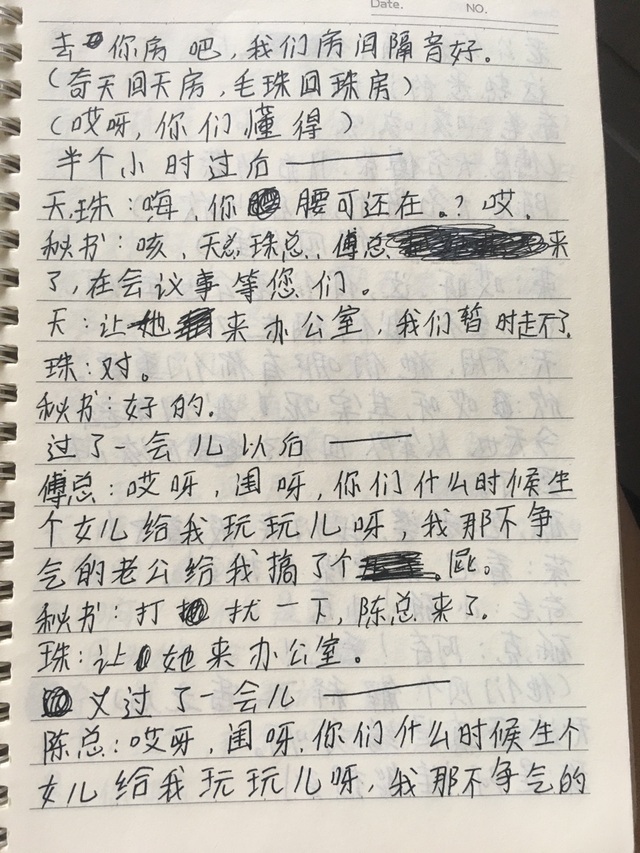 Date.
NO.
去你房吧，我们房间隔音好。
（奇天回天房，毛珠回珠房）
（哎呀，你们懂得）
半个小时过后——
天.珠：嗨，你腰可还在。？哎.
秘书：咳，天总.珠总，傅总来
了，在会议事等您们。
天：让她来办公室，我们暂时走不了.
珠：对。
秘书：好的.
过了一会儿以后——
傅总：哎呀，闺呀，你们什么时候生
个女儿给我玩玩儿呀，我那不争
气的老公给我搞了个屁。
秘书：打扰一下，陈总来了.
珠：让她来办公室。
又过了一会儿——
陈总：哎呀，闺呀，你们什么时候生个
女儿给我玩玩儿呀，我那不争气的